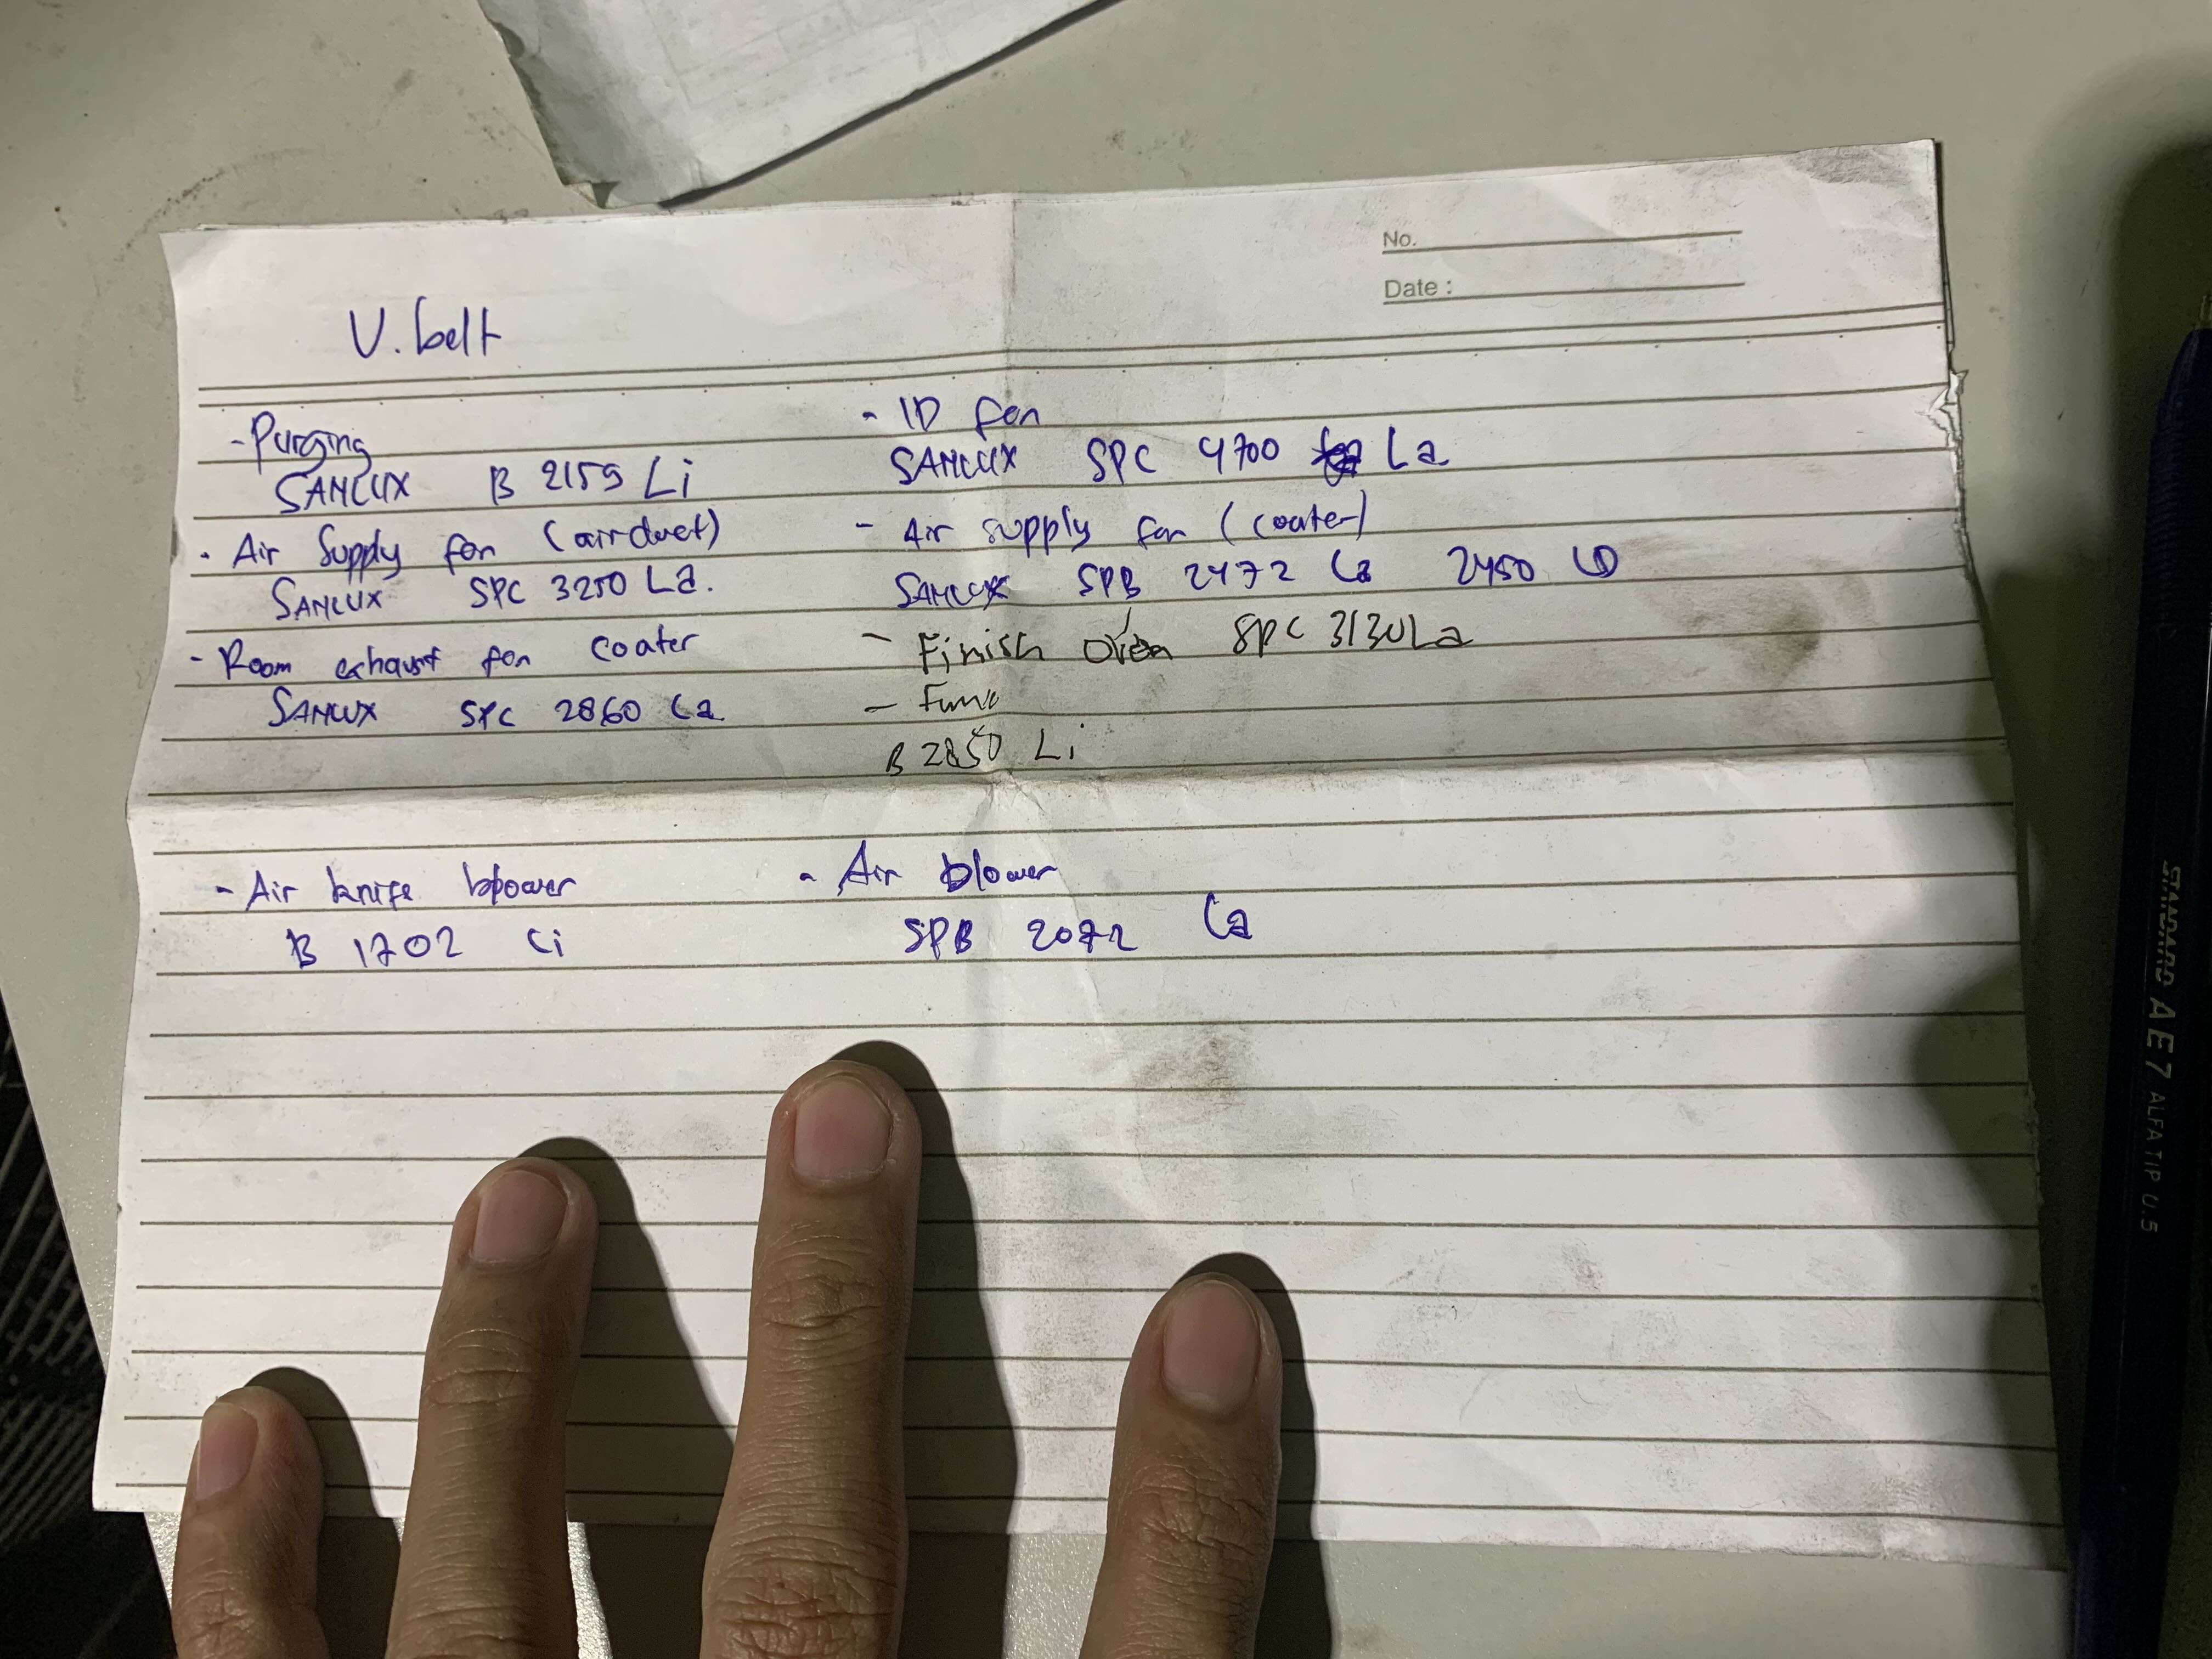 No.
Date :
V. belt
- Purging
SANLUX B 2159 Li
- Air Supply fan (air duct)
SANLUX SPC 3250 La.
- Room exhaust fan coater
SANLUX SPC 2860 La
- ID fan
SANLUX SPC 4700 La
- Air supply fan (coater)
SANLUX SPB 2472 La 2450 LD
- Finish Oven SPC 3130 La
- Fume
B 2850 Li
- Air knife blower
B 1702 Li
- Air blower
SPB 2072 La
STANDARD AE7 ALFA TIP 0.5